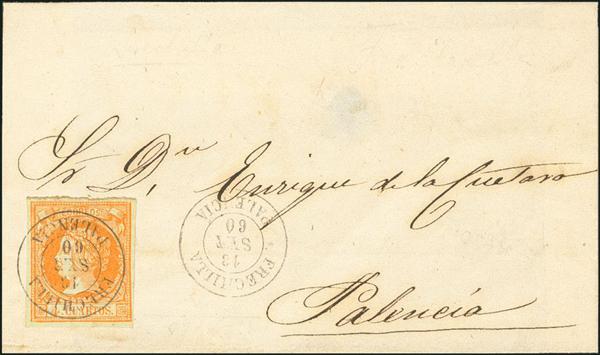 Sr Dn Enrique de la Cuetara
Palencia
FRECHILLA
13
SET
60
PALENCIA
FRECHILLA
13
SET
60
PALENCIA
CUARTOS.